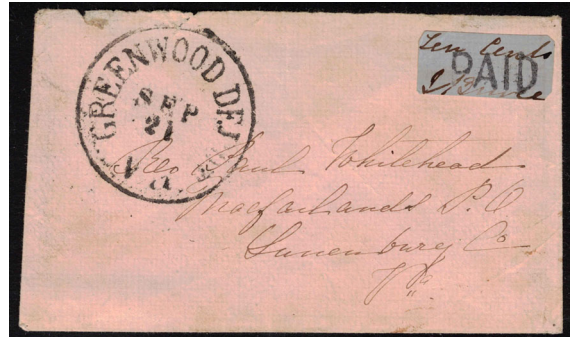 GREENWOOD DEP
SEP
21
Va.
Ten Cents
PAID
Rev Paul Whitehead
Macfarlands P.O
Lunenburg Co
Va